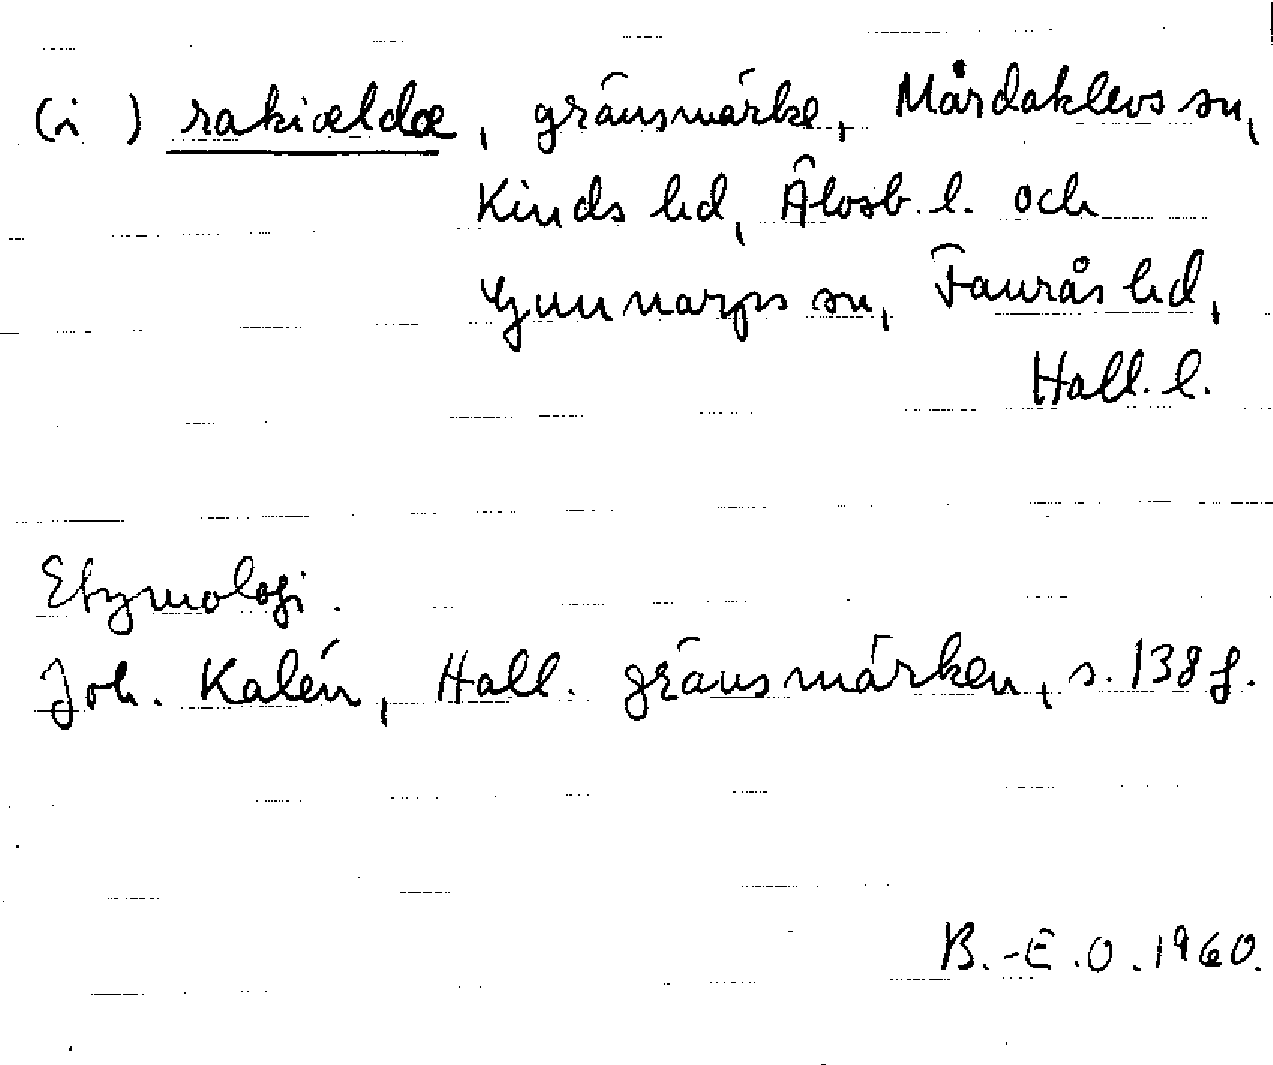 (i ) rakiældæ, gränsmärke, Mårdaklevs sn,
Kinds hd, Älvsb. l. och
Gunnarps sn, Faurås hd,
Hall. l.
Etymologi.
Joh. Kalén, Hall. gränsmärken, s. 138 f.
B.-E.O. 1960.